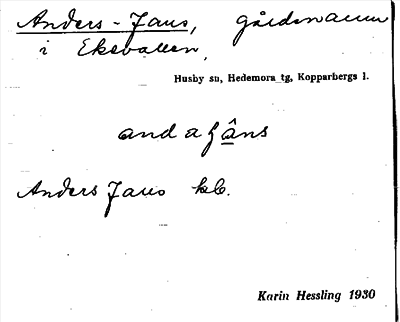 Anders-Jans, gårdsnamn
i Eksvallen,
Husby sn, Hedemora tg, Kopparbergs l.
Anders Jans
Karin Hessling 1930